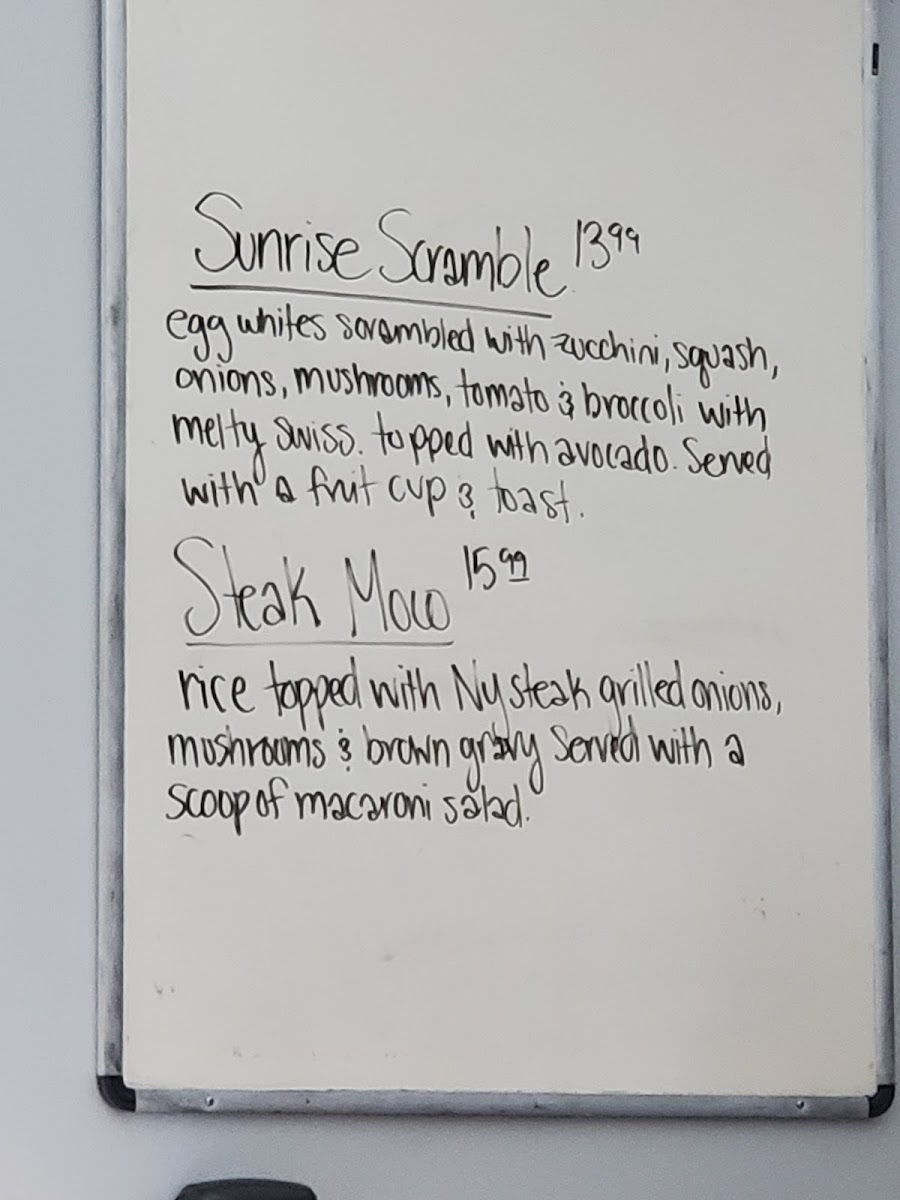 Sunrise Scramble 13.99
egg whites scrambled with zucchini, squash,
onions, mushrooms, tomato & broccoli with
melty swiss. topped with avocado. Served
with a fruit cup & toast.
Steak Moco 15.99
rice topped with Ny steak grilled onions,
mushrooms & brown gravy Served with a
scoop of macaroni salad.